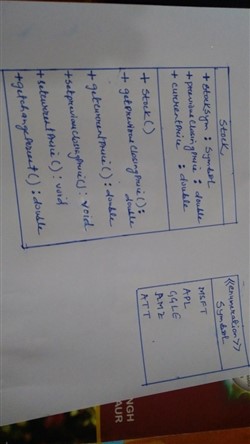 Stock
+ StockSym : Symbol
+ previousClosingPrice : double
+ currentPrice : double
+ Stock()
+ getPreviousClosingPrice() :
double
+ getCurrentPrice() : double
+ setpreviousClosingPrice() : void
+ setcurrentPrice() : void
+ getchangePercent() : double
<<enumeration>>
Symbol
MSFT
APL
GGLE
AMZ
ATT
NGH
AUR